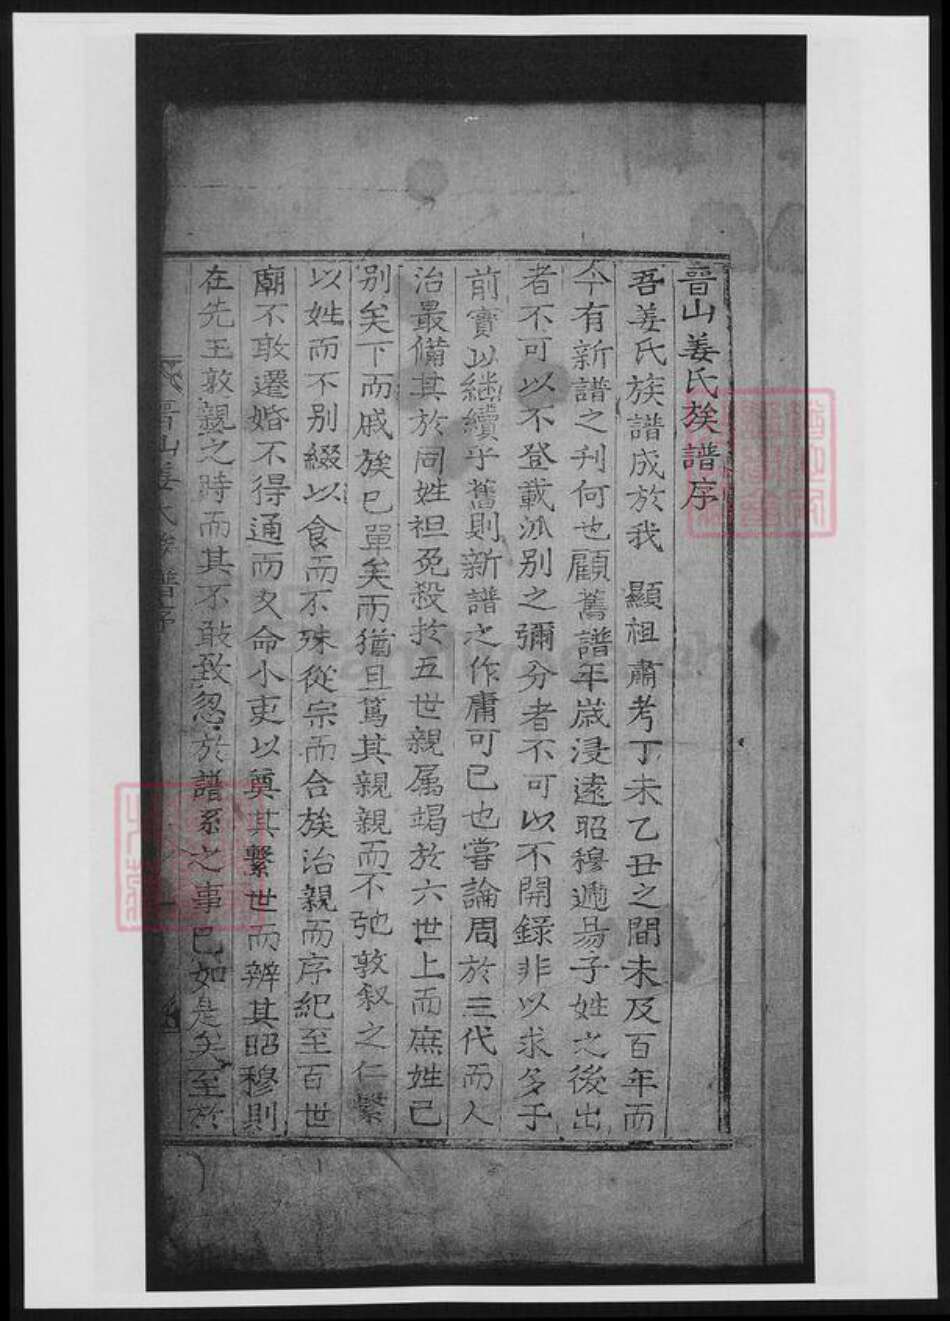 晋山姜氏族譜序
吾姜氏族譜成於我 顯祖肅考丁未乙丑之間未及百年而
今有新譜之刋何也顧舊譜年歲浸遠昭穆遞易子姓之後出
者不可以不登載派別之彌分者不可以不開録非以求多于
前實以継續乎舊則新譜之作庸可已也嘗論周於三代而人
治最備其於同姓袒免殺扵五世親属竭於六世上而庶姓已
别矣下而戚族已單矣而猶且篤其親親而不弛敦叙之仁繫
以姓而不別綴以食而不殊從宗而合族治親而序紀至百世
廟不敢遷婚不得通而又命小吏以奠其繫世而辨其昭穆則
在先王敦親之時而其不敢致忽於譜系之事已如是矣至於
晋山姜氏族譜序